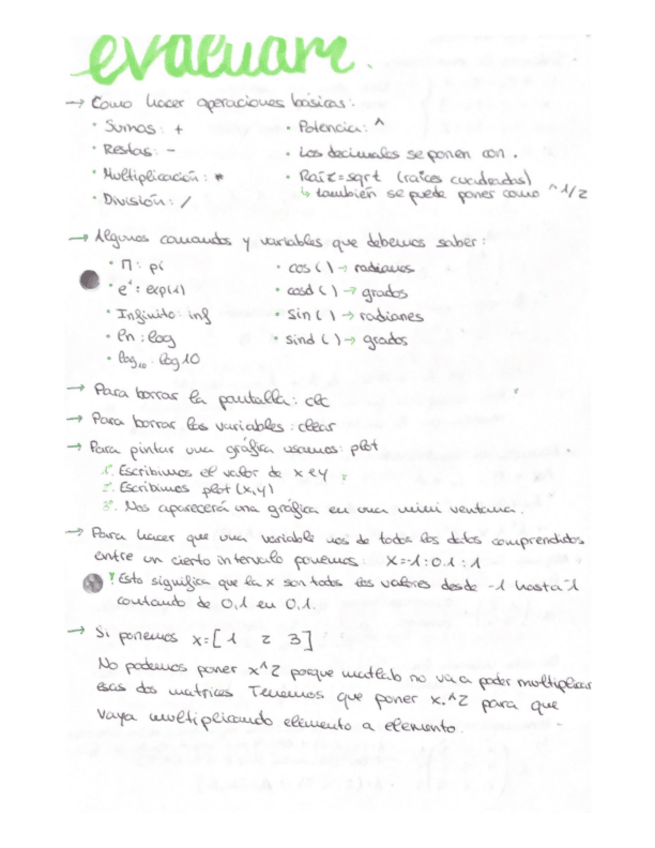 evaluam.
→ Como hacer operaciones básicas:
· Sumas: +
· Restas: -
· Multiplicación: *
· División: /
· Potencia: ^
· Los decimales se ponen con .
· Raíz = sqrt (raíces cuadradas)
↳ también se puede poner como ^1/2
→ Algunos comandos y variables que debemos saber:
· Π: pi
· e¹: exp(1)
· Infinito inf
· ln: log
· log₁₀: log10
· cos ( ) → radianes
· cosd ( ) → grados
· sin ( ) → radianes
· sind ( ) → grados
→ Para borrar la pantalla: clc
→ Para borrar las variables: clear
→ Para pintar una gráfica usamos: plot
1º. Escribimos el valor de x e y
2º. Escribimos plot (x,y)
3º. Nos aparecerá una gráfica en una mini ventana.
→ Para hacer que una variable nos de todos los datos comprendidos
entre un cierto intervalo ponemos: X=-1:0.1:1
Esto significa que la x son todos los valores desde -1 hasta 1
contando de 0,1 en 0,1.
→ Si ponemos x=[1 2 3]
No podemos poner x^2 porque matlab no va a poder multiplicar
esas dos matrices Tenemos que poner x.^2 para que
vaya multiplicando elemento a elemento.